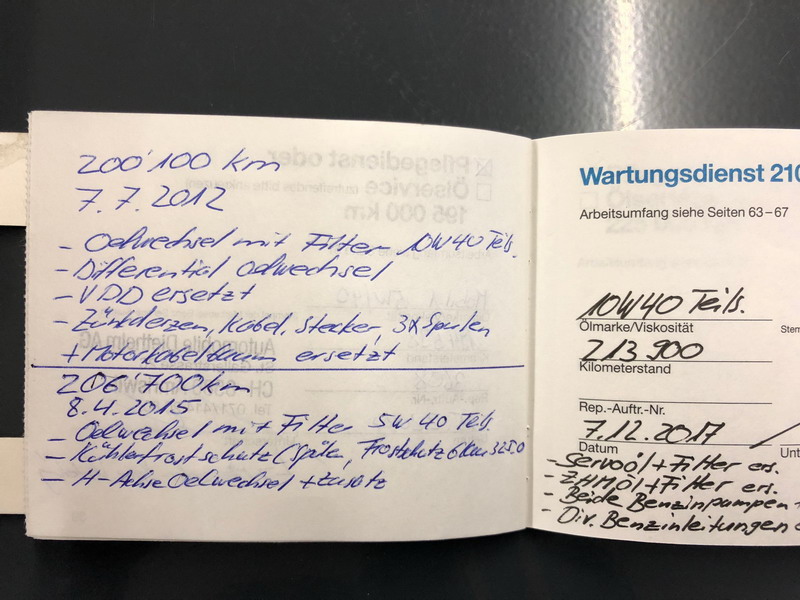 200'100 km
7.7.2012
- Oelwechsel mit Filter 10W40 Teils.
- Differential Oelwechsel
- VDD ersetzt
- Zündkerzen, Kabel, Stecker, 3x Spulen
+ Motorkabelbaum ersetzt
206'700 km
8.4.2015
- Oelwechsel mit Filter 5W40 Teils.
- Kühlerfrostschutz (Spülen, Frostschutz
- H-Achse Oelwechsel + Zusatz
Wartungsdienst 210
Arbeitsumfang siehe Seiten 63–67
10W40 Teils.
Ölmarke/Viskosität
213'900
Kilometerstand
Rep.-Auftr.-Nr.
7.12.2017
Datum
- Servoöl + Filter ers.
- ZHM Öl + Filter ers.
- Beide Benzinpumpen
- Div. Benzinleitungen